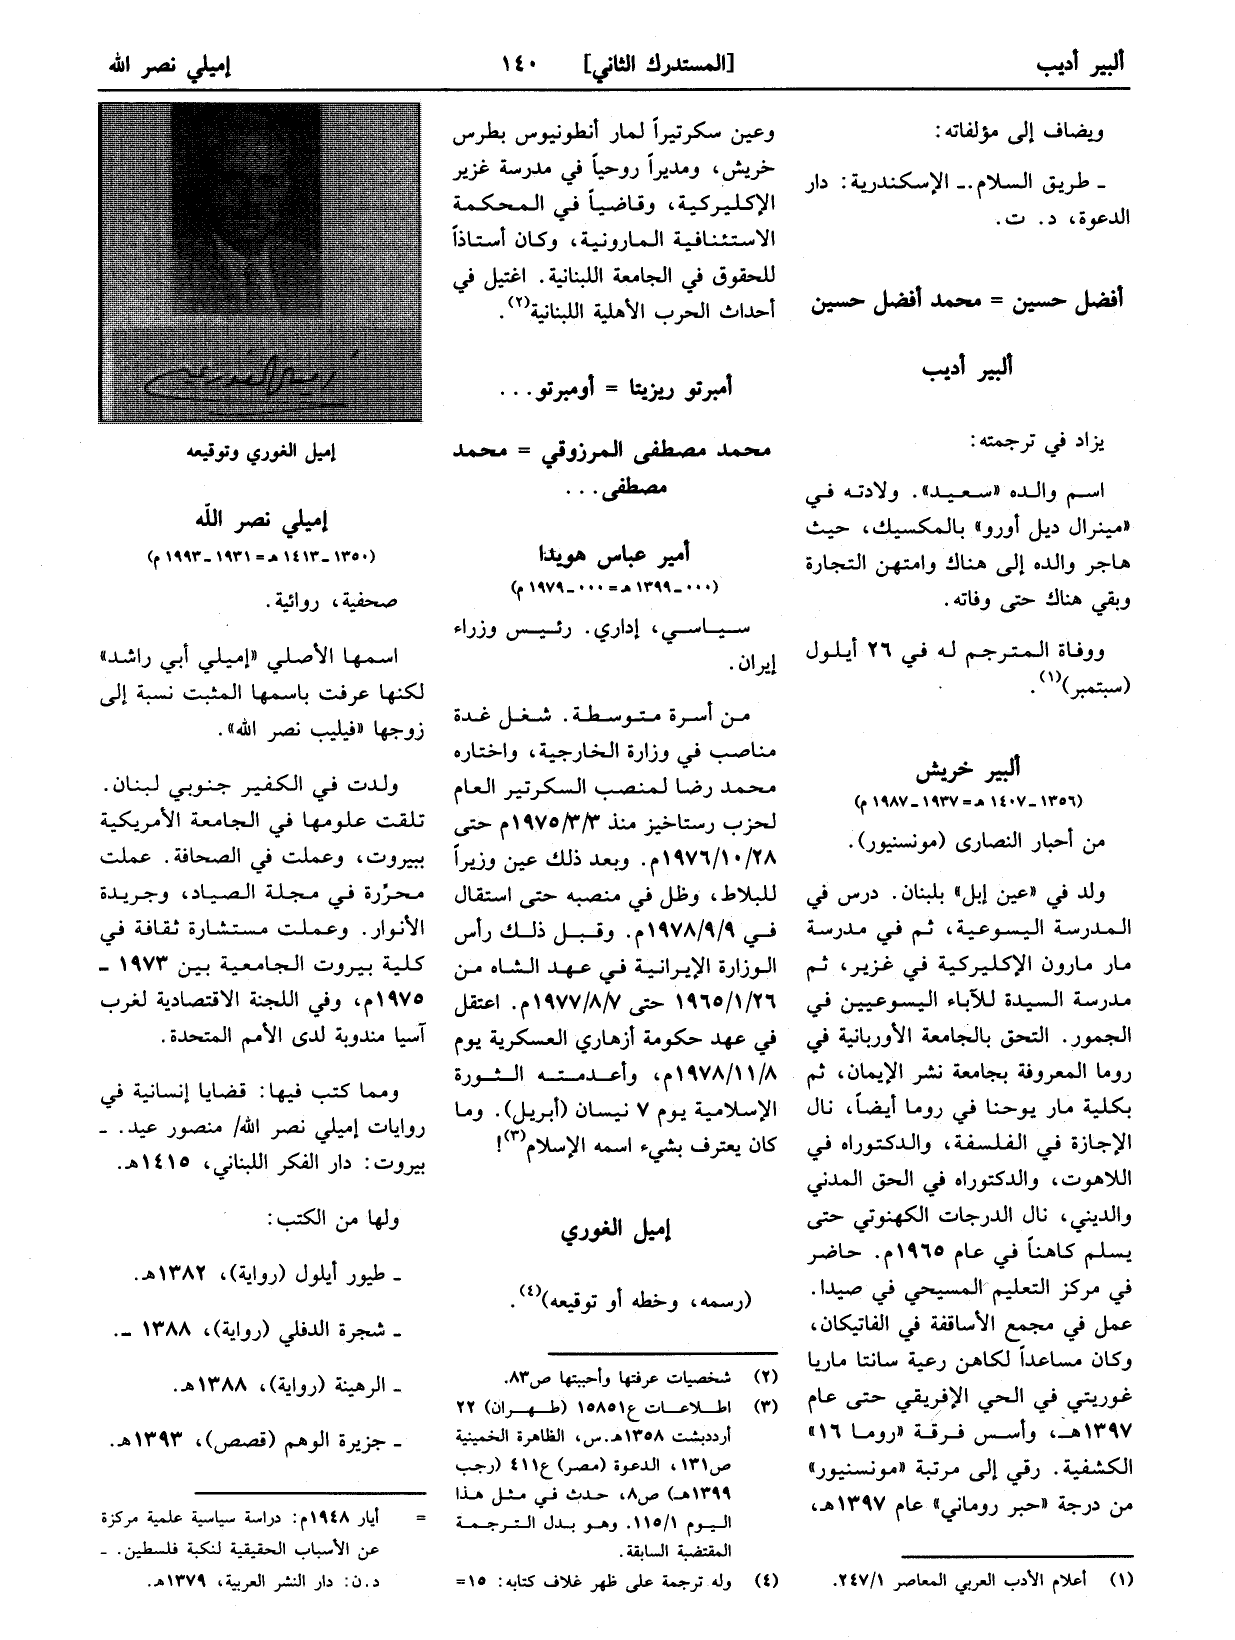 ألبير أديب [المستدرك الثاني] ١٤٠ إميلي نصر الله
ويضاف إلى مؤلفاته:
ـ طريق السلام.ـ الإسكندرية: دار
الدعوة، د. ت.
أفضل حسين = محمد أفضل حسين
ألبير أديب
يزاد في ترجمته:
اسم والده «سعيد». ولادته في
«مينرال ديل أورو» بالمكسيك، حيث
هاجر والده إلى هناك وامتهن التجارة
وبقي هناك حتى وفاته.
ووفاة المترجم له في ٢٦ أيلول
(سبتمبر)(١).
ألبير خريش
(١٣٥٦ـ١٤٠٧ هـ=١٩٣٧ـ١٩٨٧ م)
من أحبار النصارى (مونسنيور).
ولد في «عين إبل» بلبنان. درس في
المدرسة اليسوعية، ثم في مدرسة
مار مارون الإكليركية في غزير، ثم
مدرسة السيدة للآباء اليسوعيين في
الجمور. التحق بالجامعة الأوربانية في
روما المعروفة بجامعة نشر الإيمان، ثم
بكلية مار يوحنا في روما أيضاً، نال
الإجازة في الفلسفة، والدكتوراه في
اللاهوت، والدكتوراه في الحق المدني
والديني، نال الدرجات الكهنوتي حتى
يسلم كاهناً في عام ١٩٦٥م. حاضر
في مركز التعليم المسيحي في صيدا.
عمل في مجمع الأساقفة في الفاتيكان،
وكان مساعداً لكاهن رعية سانتا ماريا
غوريتي في الحي الإفريقي حتى عام
١٣٩٧هـ، وأسس فرقة «روما ١٦»
الكشفية. رقي إلى مرتبة «مونسنيور»
من درجة «حبر روماني» عام ١٣٩٧هـ،
(١) أعلام الأدب العربي المعاصر ٢٤٧/١.
وعين سكرتيراً لمار أنطونيوس بطرس
خريش، ومديراً روحياً في مدرسة غزير
الإكليركية، وقاضياً في المحكمة
الاستئنافية المارونية، وكان أستاذاً
للحقوق في الجامعة اللبنانية. اغتيل في
أحداث الحرب الأهلية اللبنانية(٢).
أمبرتو ريزيتا = أومبرتو...
محمد مصطفى المرزوقي = محمد
مصطفى...
أمير عباس هويدا
(٠٠٠ـ١٣٩٩ هـ=٠٠٠ـ١٩٧٩ م)
سياسي، إداري. رئيس وزراء
إيران.
من أسرة متوسطة. شغل غدة
مناصب في وزارة الخارجية، واختاره
محمد رضا لمنصب السكرتير العام
لحزب رستاخيز منذ ١٩٧٥/٣/٣م حتى
١٩٧٦/١٠/٢٨م. وبعد ذلك عين وزيراً
للبلاط، وظل في منصبه حتى استقال
في ١٩٧٨/٩/٩م. وقبل ذلك رأس
الوزارة الإيرانية في عهد الشاه من
١٩٦٥/١/٢٦ حتى ١٩٧٧/٨/٧م. اعتقل
في عهد حكومة أزهاري العسكرية يوم
١٩٧٨/١١/٨م، وأعدمته الثورة
الإسلامية يوم ٧ نيسان (أبريل). وما
كان يعترف بشيء اسمه الإسلام(٣)!
إميل الغوري
(رسمه، وخطه أو توقيعه)(٤).
(٢) شخصيات عرفتها وأحببتها ص٨٣.
(٣) اطلاعات ع١٥٨٥١ (طهران) ٢٢
أرديبشت ١٣٥٨هـ.س، الظاهرة الخمينية
ص١٣١، الدعوة (مصر) ع٤١١ (رجب
١٣٩٩هـ) ص٨، حدث في مثل هذا
اليوم ١١٥/١. وهو بدل الترجمة
المقتضبة السابقة.
(٤) وله ترجمة على ظهر غلاف كتابه: ١٥=
إميل الغوري
إميل الغوري وتوقيعه
إميلي نصر الله
(١٣٥٠ـ١٤١٣ هـ=١٩٣١ـ١٩٩٣ م)
صحفية، روائية.
اسمها الأصلي «إميلي أبي راشد»
لكنها عرفت باسمها المثبت نسبة إلى
زوجها «فيليب نصر الله».
ولدت في الكفير جنوبي لبنان.
تلقت علومها في الجامعة الأمريكية
ببيروت، وعملت في الصحافة. عملت
محرِّرة في مجلة الصياد، وجريدة
الأنوار. وعملت مستشارة ثقافة في
كلية بيروت الجامعية بين ١٩٧٣ ـ
١٩٧٥م، وفي اللجنة الاقتصادية لغرب
آسيا مندوبة لدى الأمم المتحدة.
ومما كتب فيها: قضايا إنسانية في
روايات إميلي نصر الله/ منصور عيد. ـ
بيروت: دار الفكر اللبناني، ١٤١٥هـ.
ولها من الكتب:
ـ طيور أيلول (رواية)، ١٣٨٢هـ.
ـ شجرة الدفلي (رواية)، ١٣٨٨ ـ.
ـ الرهينة (رواية)، ١٣٨٨هـ.
ـ جزيرة الوهم (قصص)، ١٣٩٣هـ.
= أيار ١٩٤٨م: دراسة سياسية علمية مركزة
عن الأسباب الحقيقية لنكبة فلسطين. ـ
د.ن: دار النشر العربية، ١٣٧٩هـ.